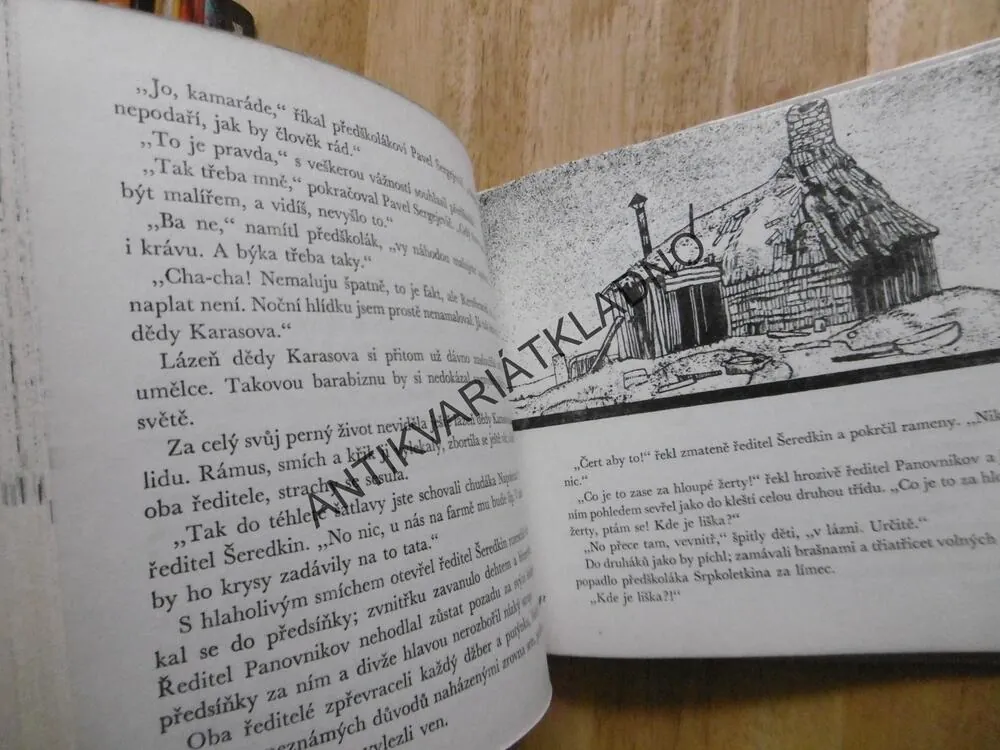 „Jo, kamaráde,“ říkal předškolákovi Pavel
nepodaří, jak by člověk rád.“
„To je pravda,“ s veškerou vážností souhlasil
„Tak třeba mně,“ pokračoval Pavel Sergejevič.
být malířem, a vidíš, nevyšlo to.“
„Ba ne,“ namítl předškolák, „vy náhodou
i krávu. A býka třeba taky.“
„Cha-cha! Nemaluju špatně, to je fakt, ale
naplat není. Noční hlídku jsem prostě nenamaloval.
dědy Karasova.“
Lázeň dědy Karasova si přitom už dávno
umělce. Takovou barabiznu by si nedokázal
světě.
Za celý svůj perný život neviděla lázeň dědy
lidu. Rámus, smích a křik ji zbortila se ještě
oba ředitele, strachy se sesula.
„Tak do téhle šatlavy jste schovali chudáka
ředitel Šeredkin. „No nic, u nás na farmě mu bude
by ho krysy zadávily na to tata.“
S hlaholivým smíchem otevřel ředitel Šeredkin
kal se do předsíňky; zvnitřku zavanulo dehtem a
Ředitel Panovnikov nehodlal zůstat pozadu za
předsíňky za ním a divže hlavou nerozbořil nízký
Oba ředitelé zpřevraceli každý džber a
neznámých důvodů naházenými zrovna
vylezli ven.
„Čert aby to!“ řekl zmateně ředitel Šeredkin a pokrčil rameny.
nic.“
„Co je to zase za hloupé žerty!“ řekl hrozivě ředitel Panovnikov a
ním pohledem sevřel jako do kleští celou druhou třídu. „Co je to za
žerty, ptám se! Kde je liška?“
„No přece tam, vevnitř,“ špitly děti, „v lázni. Určitě.“
Do druháků jako by píchl; zamávali brašnami a třiatřicet volných
popadlo předškoláka Srpkoletkina za límec.
„Kde je liška?!“
ANTIKVARIÁTKLADNO